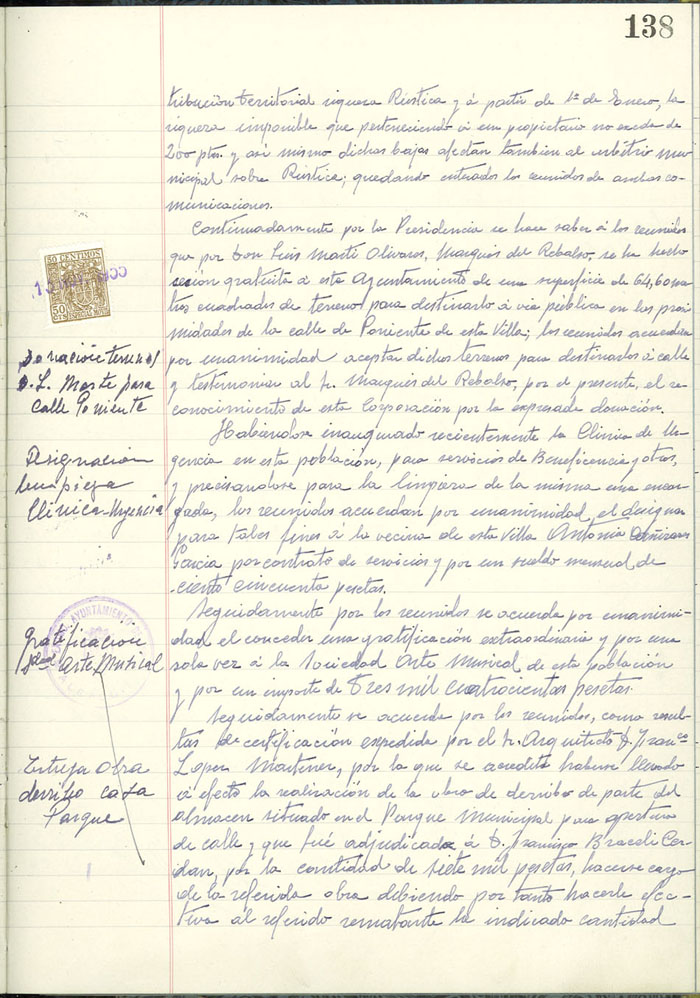 138
tribución territorial riqueza Rústica y á partir de 1º de Enero, la
riqueza imponible que perteneciendo á un propietario no exceda de
200 ptas. y asi mismo dichas bajas afectan tambien al arbitrio mu-
nicipal sobre Rústica; quedando enterados los reunidos de ambas co-
municaciones.
Continuadamente por la Presidencia se hace saber á los reunidos
que por Don Luis Marti Olivares, Marqués del Rebalso, se ha hecho
cesión gratuita á este Ayuntamiento de una superficie de 64,60 me-
tros cuadrados de terreno para destinarlo á via pública en las proxi-
midades de la calle de Poniente de esta Villa; los reunidos acuerdan
por unanimidad aceptar dichos terrenos para destinarlos á calle
y testimoniar al Sr. Marqués del Rebalso, por el presente, el re-
conocimiento de esta Corporación por la expresada donación.
Habiendose inaugurado recientemente la Clinica de Ur-
gencia en esta población, para servicios de Beneficencia y otros,
y precisandose para la limpieza de la misma una encar-
gada, los reunidos acuerdan por unanimidad el designar
para tales fines á la vecina de esta Villa Antonia
Garcia por contrato de servicios y por un sueldo mensual de
ciento cincuenta pesetas.
Seguidamente por los reunidos se acuerda por unanimi-
dad el conceder una gratificación extraordinaria y por una
sola vez á la Sociedad Arte Musical de esta población
y por un importe de Tres mil cuatrocientas pesetas.
Seguidamente se acuerda por los reunidos, como resul-
tas de certificación expedida por el Sr. Arquitecto D. Franco
Lopez Martinez, por la que se acredita haberse llevado
á efecto la realización de la obra de derribo de parte del
almacen situado en el Parque Municipal para apertura
de calle y que fué adjudicada á D. Francisco Braceli Cer-
dan, por la cantidad de siete mil pesetas, hacerse cargo
de la referida obra debiendo por tanto hacerle efec-
tiva al referido rematante la indicada cantidad
50 CENTIMOS
50
CTS ESPECIAL MOVIL
Donación terrenos
D. L. Marte para
Calle Poniente
Designacion
limpieza
Clinica Urgencia
AYUNTAMIENTO
Gratificacion
Sdad Arte Musical
obra
derribo casa
Parque